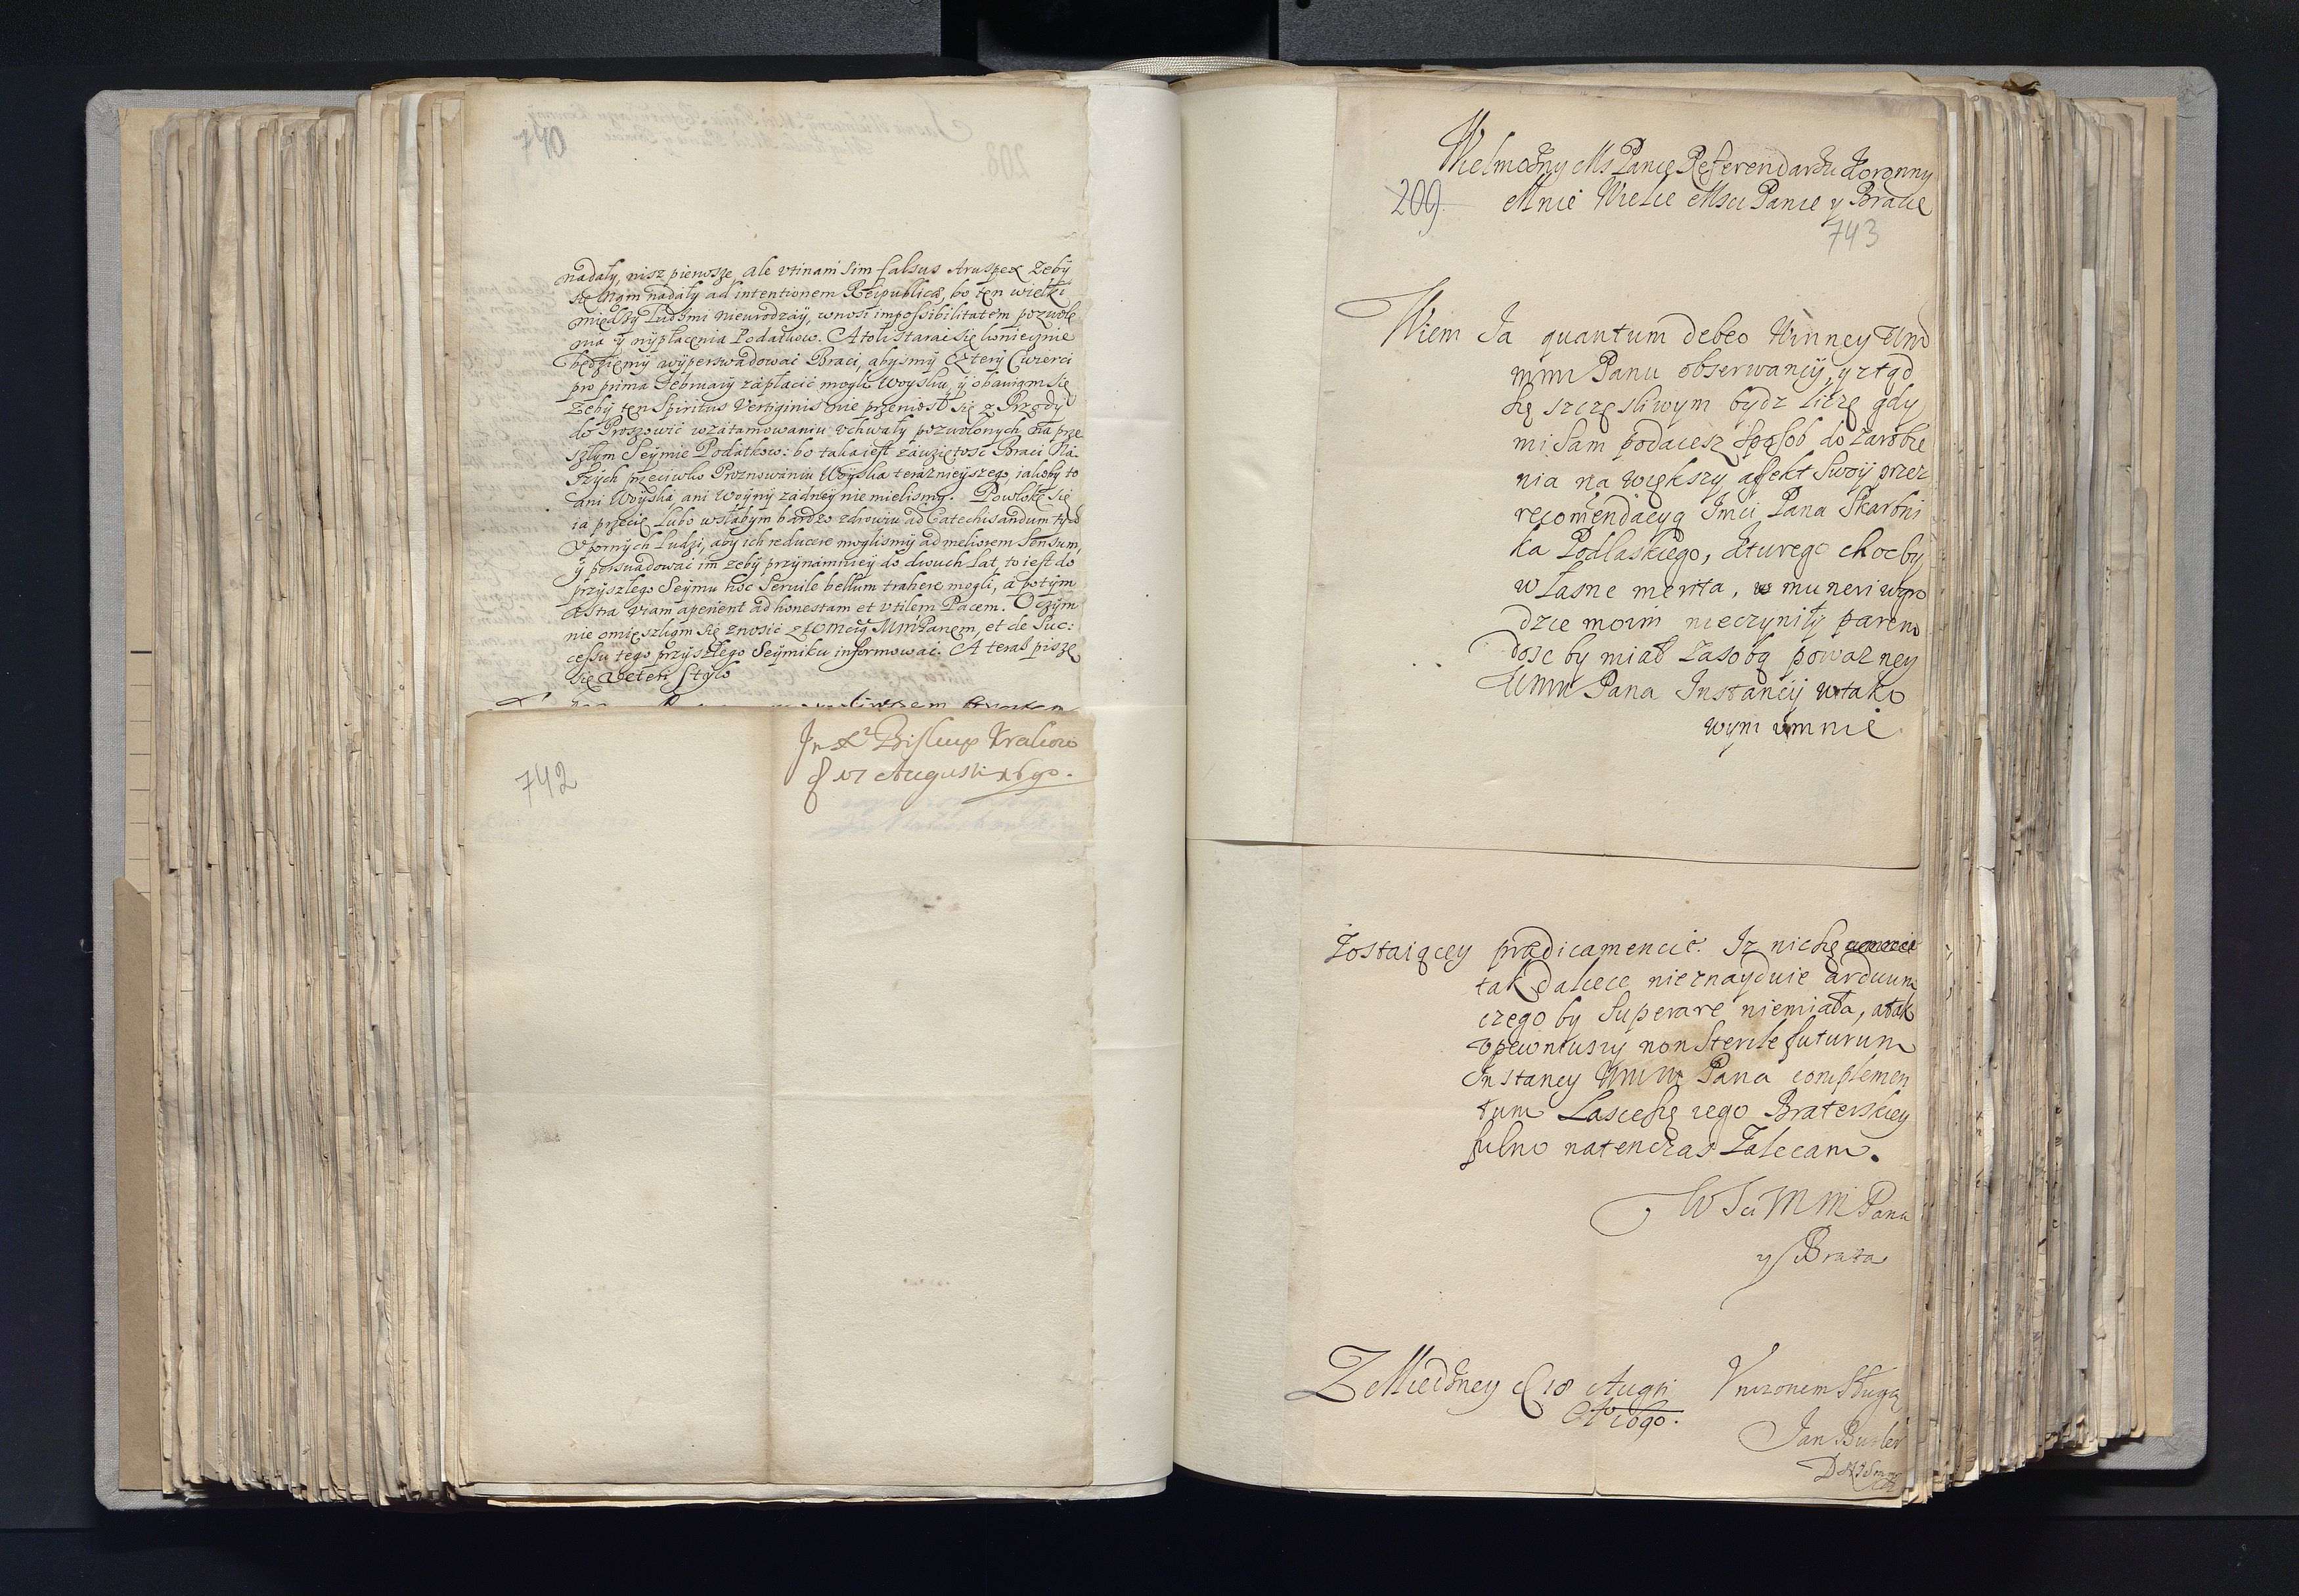 nadały, nisz pierwsze, ale vtinam sim falsus Aruspex Zeby
nadały ad intentionem Reipublicæ, bo ten wielki
między ludźmi nieurodzay, wnosi impossibilitatem pozwole
nia y wypłacenia Podatkow. Atoli starać się koniecznie
będziemy wyperswadować Braci, abysmy cztery Cwierci
pro prima February zapłacić mogli Woysku, y obawiam się
żeby ten Spiritus Vertiginis nie przeniosł się z Srzody
do Proszowic w zatamowaniu vchwały pozwolonych na prze
szłym Seymie Podatkow: bo taka iest zawziętosc Braci Na
szych przeciwko Proznowaniu Woyska teraznieyszego, iakoby to
ani Woyska, ani Woyny zadney nie mielismy. Powlokę się
ia przecię lubo w słabym bardzo zdrowiu ad Catechisandum tych
Vpornych Ludzi, aby ich reducere moglismy ad meliorem Sensum,
y perswadować im zeby przynamniey do dwuch Lat, to iest do
przyszłego Seymu hoc Servile bellum trahere mogli, a potym
Astra viam aperient ad honestam et vtilem Pacem. O czym
nie omięszkam się znosić z WMcią MMPanem, et de Suc:
cessu tego przyszłego Seymiku informować. A teraz piszę
się veteri stylo
742
Biskup Krakow
17 Augusti 1690.
Wielmożny Mś Panie Referendarzu Koronny
209. Mnie Wielce Msci Panie y Bracie
743
Wiem Ja quantum debeo Winney Wm
mm Panu obserwancij, y ztąd
się szczęsliwym bydz liczę gdy
mi Sam podaiesz sposob do zarobie
nia na większy affekt Swoij przez
recomendacyą Imci Pana Skarbni
ka Podlaskiego, kturego chocby
własne merita, w muneri wgro
dzie moim nieczyniły parem
dosc by miał zasobą powazney
Wmm Pana Instancij w tako
wym vmnie
Zostaiącey prædicamencie. Iz nic się
tak dalece nieznayduie arduum
czego by Superare niemiała, a tak
vpewniwszy non Sterile futurum
Instancy Wmm Pana complemen
tum Lascesię iego Braterskiey
pilno natenczas Zalecam.
W Sci M M Pana
y Brata
Z Miedzney d 18 Augti
A° 1690.
Vnizonem Sługą
Jan Butler